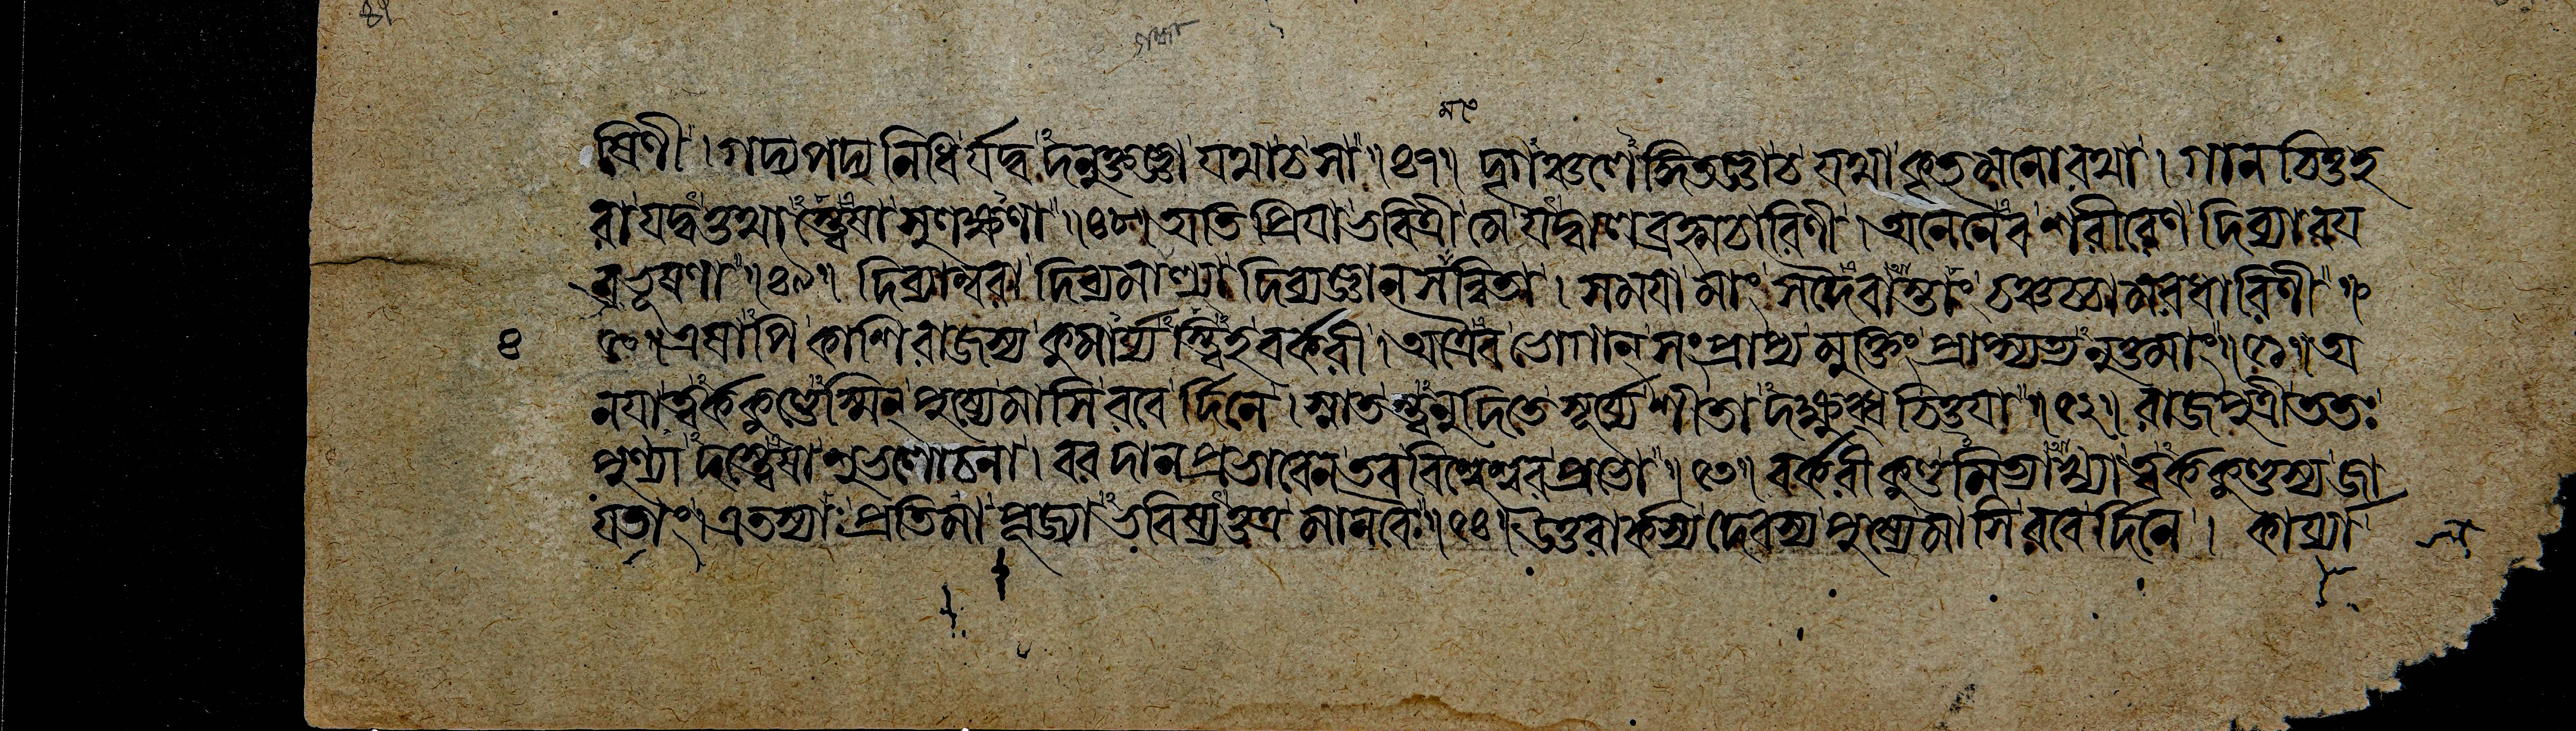 ষিণী । গদ্যপদ্যনিধির্যদ্বদনুক্তজ্ঞা যথাচ সা ॥৪৭॥ ঙ্গিতজ্ঞাচ যথাকৃতমনোরথা । গানচিত্তহ
রা যদ্বত্তথাস্ত্বেষা সুলক্ষণা ॥৪৮॥ অতিপ্রিয়া ভবিত্রী মে যদ্বালব্রহ্মচারিণী । অনেনৈব শরীরেণ দিব্যাবয়
বভূষণা ॥৪৯॥ দিব্যাম্বরা দিব্যমাল্যা দিব্যজ্ঞানসমন্বিতা । সময়া মাং সদৈবাস্তাং চঞ্চচ্চামরধারিণী ॥
৪ ৫০॥ এষাপি কাশিরাজস্য কুমার্য্যস্ত্বিহ বর্করী । অত্রৈব ভোগান্ সংপ্রাপ্য মুক্তিং প্রাপ্স্যত্যনুত্তমাং ॥৫১॥ অ
নয়াত্বর্ককুণ্ডেস্মিন্ পুষ্যেমাসি রবের্দিনে । স্নাতন্ত্বনুদিতে সূর্য্যে শীতাদক্ষুব্ধচিত্তয়া ॥৫২॥ রাজপুত্রী ততঃ
পুণ্যাদস্ত্বেষা শুভলোচনা । বরদানপ্রভাবেন তব বিশ্বেশ্বর প্রভো ॥৫৩॥ বর্করীকুণ্ডমিত্যাখ্যাত্বর্ককুণ্ডস্য জা
য়তাং । এতস্যাঃ প্রতিমা পূজ্যা ভবিষ্যত্যত্র মানবৈঃ ॥৫৪॥ উত্তরার্কস্য দেবস্য পুষ্যেমাসি রবের্দিনে । কার্য্যা